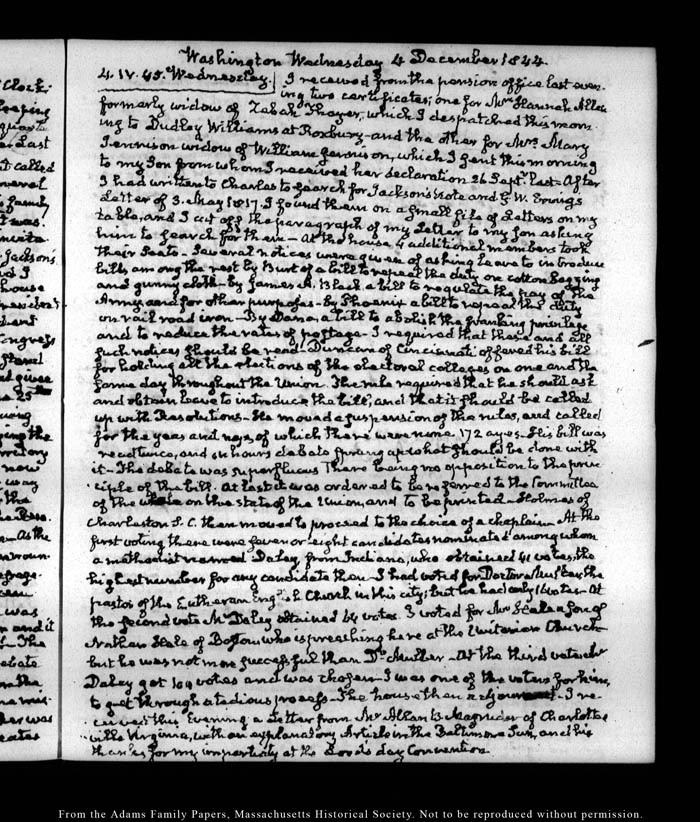 Washington Wednesday 4 December 1844.
4. IV. 45. Wednesday. I received from the pension office last even-
ing two certificates; one for Mrs Hannah Allen
formerly widow of Zabah Thayer, which I despatched this morn-
ing to Dudley Williams at Roxbury—and the other for Mrs Mary
Jennison widow of William Jennison, which I sent this morning
to my Son from whom I received her declaration 26 Septr last—After
I had written to Charles to search for Jackson's note and G. W. Erving's
Letter of 3. May 1817. I found them on a small file of Letters on my
table, and I cut off the paragraph of my Letter to my son asking
him to search for them—At the house 4 additional members took
their Seats—Several notices were given of asking leave to introduce
bills, among the rest by Burt of a bill to repeal the duty on cotton bagging
and gunny cloth—by James A. Black a bill to regulate the pay of the
Army and for other purposes—by Phoenix a bill to repeal the duty
on rail road iron—By Dana, a bill to abolish the franking privilege
and to reduce the rates of postage—I required that these and all
such notices should be read—Duncan of Cincinnati offered his bill
for holding all the elections of the electoral colleges on one and the
same day throughout the Union. The rule required that he should ask
and obtain leave to introduce the bill, and that it should be called
up with Resolutions—He moved a suspension of the rules, and called
for the yeas and nays, of which there were none. 172 ayes—His bill was
read twice, and six hours debate sprung up what should be done with
it—The debate was superfluous there being no opposition to the prin-
ciple of the bill. At last it was ordered to be referred to the Committee
of the whole on the state of the Union, and to be printed—Holmes of
Charleston S. C. then moved to proceed to the choice of a chaplain—At the
first voting there were seven or eight candidates nominated among whom
a methodist named Daley, from Indiana, who obtained 41 votes, the
highest number for any candidate then—I had voted for Doctor Muller, the
pastor of the Lutheran Engsh Church in this city; but he had only 16 votes—At
the second vote Mr Daley obtained 64 votes. I voted for Mr Hale a son of
Nathan Hale of Boston who is preaching here at the Unitarian Church—
but he was not more successful than Dr Muller—At the third vote Mr
Daley got 109 votes and was chosen—I was one of the voters for him,
to get through a tedious process—The house then adjourned—I re-
ceived this Evening a Letter from Mr Allan B. Magruder of Charlottes
-ville Virginia, with an explanatory Article in the Baltimore Sun, and his
thanks for my impartiality at the Lord's day Convention.
From the Adams Family Papers, Massachusetts Historical Society. Not to be reproduced without permission.